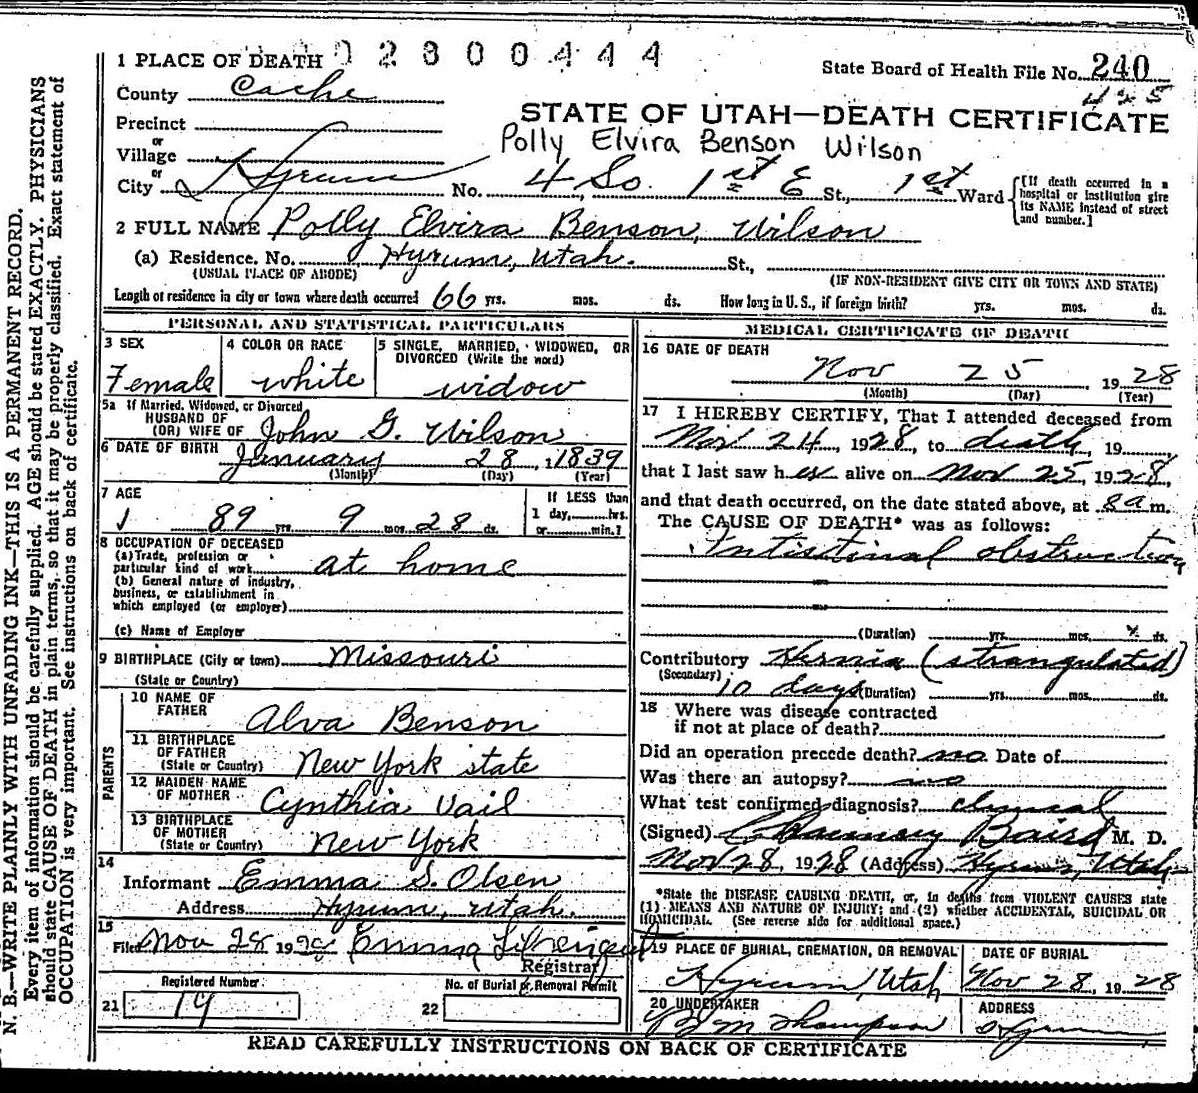 N. B.—WRITE PLAINLY WITH UNFADING INK—THIS IS A PERMANENT RECORD.
Every item of information should be carefully supplied. AGE should be stated EXACTLY. PHYSICIANS
should state CAUSE OF DEATH in plain terms, so that it may be properly classified. Exact statement of
OCCUPATION is very important. See instructions on back of certificate.
1 PLACE OF DEATH
02800444
State Board of Health File No. 240
425
County Cache
STATE OF UTAH—DEATH CERTIFICATE
Precinct
Polly Elvira Benson Wilson
or
Village
or
City Hyrum No. 4 So. 1st E St., 1st Ward
[If death occurred in a
hospital or institution give
its NAME instead of street
and number.]
2 FULL NAME Polly Elvira Benson, Wilson
(a) Residence. No. Hyrum, Utah. St.,
(USUAL PLACE OF ABODE) (IF NON-RESIDENT GIVE CITY OR TOWN AND STATE)
Length of residence in city or town where death occurred 66 yrs. mos. ds. How long in U. S., if foreign birth? yrs. mos. ds.
PERSONAL AND STATISTICAL PARTICULARS
3 SEX
Female
4 COLOR OR RACE
white
5 SINGLE, MARRIED, WIDOWED, OR
DIVORCED (Write the word)
widow
5a If Married, Widowed, or Divorced
HUSBAND OF
(OR) WIFE OF John G. Wilson
6 DATE OF BIRTH January 28, 1839
(Month) (Day) (Year)
7 AGE
89 yrs. 9 mos. 28 ds.
If LESS than
1 day, hrs.
or min.?
8 OCCUPATION OF DECEASED
(a) Trade, profession or
particular kind of work at home
(b) General nature of industry,
business, or establishment in
which employed (or employer)
(c) Name of Employer
9 BIRTHPLACE (City or town) Missouri
(State or Country)
PARENTS
10 NAME OF
FATHER Alva Benson
11 BIRTHPLACE
OF FATHER
(State or Country) New York state
12 MAIDEN NAME
OF MOTHER Cynthia Vail
13 BIRTHPLACE
OF MOTHER
(State or Country) New York
14
Informant Emma S. Olsen
Address Hyrum, Utah.
15
Filed Nov 28 1928 Emma
Registrar
Registered Number
21 14
No. of Burial or Removal Permit
22
MEDICAL CERTIFICATE OF DEATH
16 DATE OF DEATH
Nov 25, 1928
(Month) (Day) (Year)
17 I HEREBY CERTIFY, That I attended deceased from
Nov 24, 1928, to death, 19
that I last saw her alive on Nov 25, 1928,
and that death occurred, on the date stated above, at 8 a m.
The CAUSE OF DEATH* was as follows:
Intistinal obstruction
(Duration) yrs. mos. ds.
Contributory Hernia (strangulated)
(Secondary) 10 days (Duration) yrs. mos. ds.
18 Where was disease contracted
if not at place of death?
Did an operation precede death? no. Date of
Was there an autopsy? no
What test confirmed diagnosis? clinical
(Signed) Baird M. D.
Nov 28, 1928 (Address) Hyrum, Utah
*State the DISEASE CAUSING DEATH, or, in deaths from VIOLENT CAUSES state
(1) MEANS AND NATURE OF INJURY; and (2) whether ACCIDENTAL, SUICIDAL OR
HOMICIDAL. (See reverse side for additional space.)
19 PLACE OF BURIAL, CREMATION, OR REMOVAL
Hyrum, Utah
DATE OF BURIAL
Nov 28, 1928
20 UNDERTAKER
B M Thompson
ADDRESS
Hyrum
READ CAREFULLY INSTRUCTIONS ON BACK OF CERTIFICATE